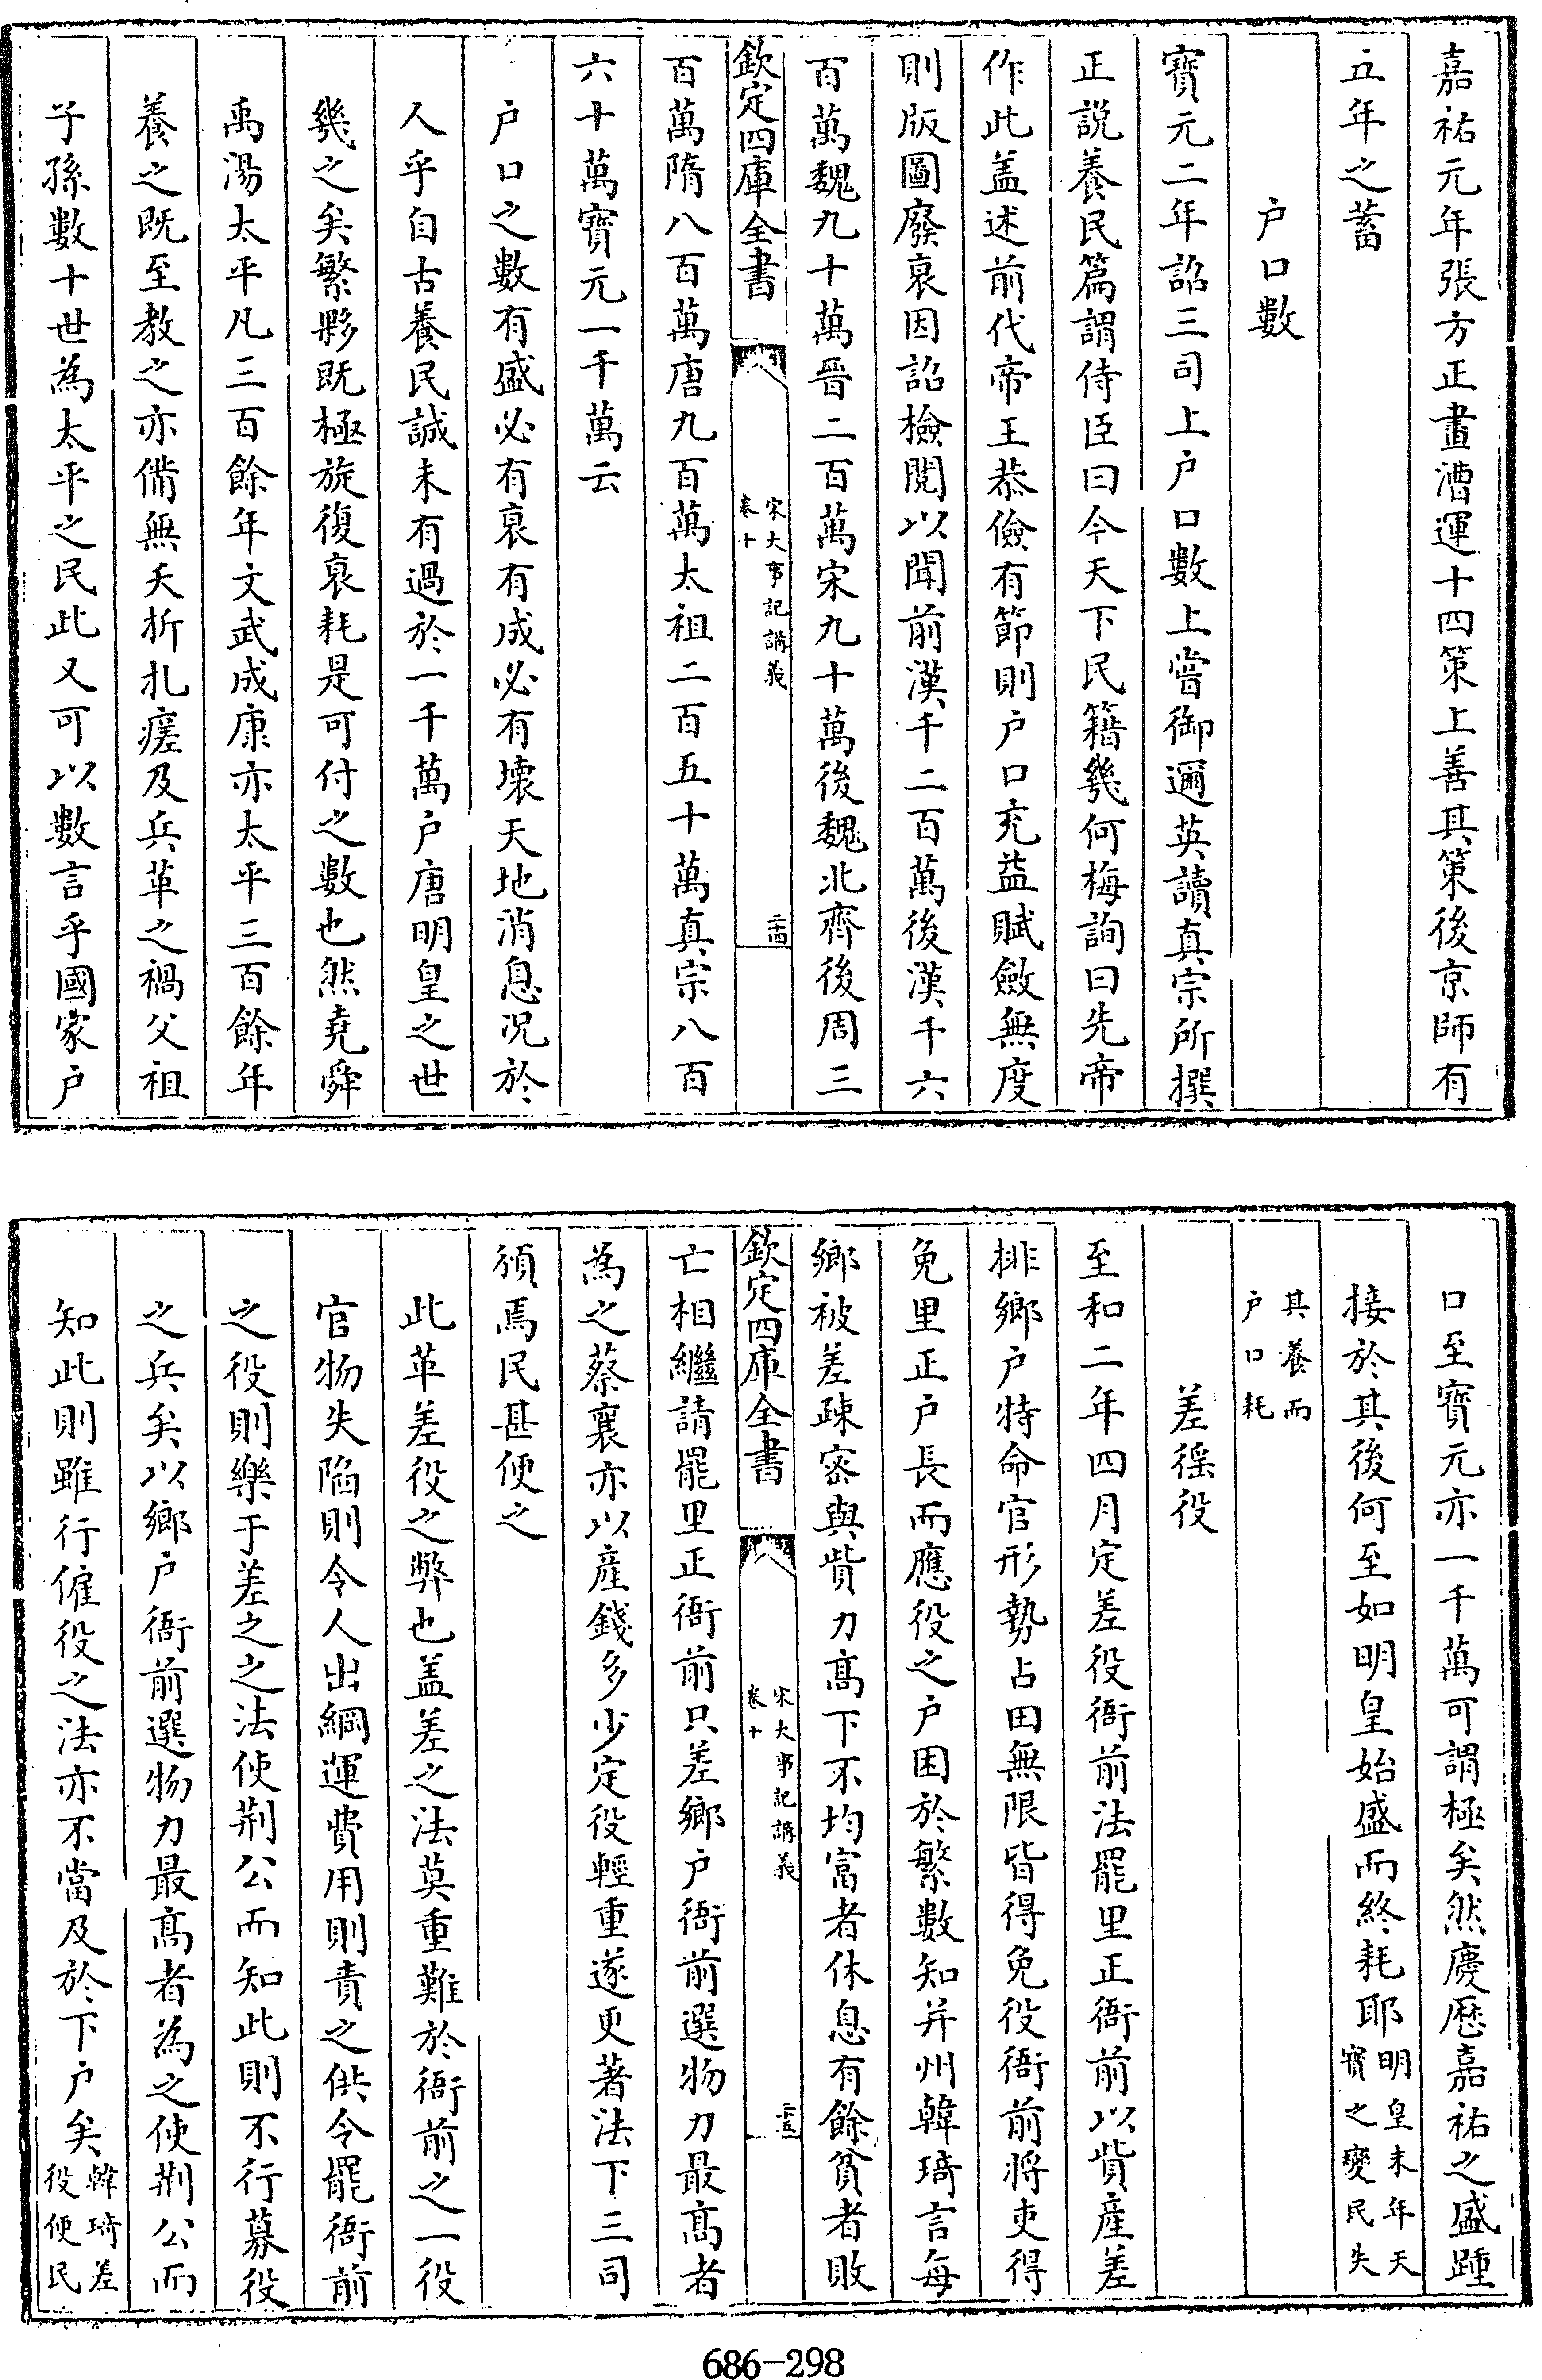 嘉祐元年張方正畫漕運十四策上善其策後京師有
五年之蓄
户口數
寶元二年詔三司上户口數上嘗御邇英讀真宗所撰
正説養民篇謂侍臣曰今天下民籍幾何梅詢曰先帝
作此盖述前代帝王恭儉有節則户口充益賦斂無度
則版圖廢衰因詔檢閲以聞前漢千二百萬後漢千六
百萬魏九十萬晉二百萬宋九十萬後魏北齊後周三
欽定四庫全書
宋大事記講義
卷十
二十四
百萬隋八百萬唐九百萬太祖二百五十萬真宗八百
六十萬寶元一千萬云
户口之數有盛必有衰有成必有壊天地消息况於
人乎自古養民誠未有過於一千萬户唐明皇之世
幾之矣繁夥既極旋復衰耗是可付之數也然堯舜
禹湯太平凡三百餘年文武成康亦太平三百餘年
養之既至教之亦備無夭折札瘥及兵革之禍父祖
子孫數十世為太平之民此又可以數言乎國家户
口至寶元亦一千萬可謂極矣然慶歴嘉祐之盛踵
接於其後何至如明皇始盛而終耗耶明皇末年天
寶之變民失
其養而
户口耗
差徭役
至和二年四月定差役衙前法罷里正衙前以貲產差
排鄉户特命官形勢占田無限皆得免役衙前將吏得
免里正户長而應役之户困於繁數知并州韓琦言每
鄉被差疎密與貲力髙下不均富者休息有餘貧者敗
欽定四庫全書
宋大事記講義
卷十
二十五
亡相繼請罷里正衙前只差鄉户衙前選物力最髙者
為之蔡襄亦以産錢多少定役輕重遂更著法下三司
頒焉民甚便之
此革差役之弊也盖差之法莫重難於衙前之一役
官物失陷則令人出綱運費用則責之供令罷衙前
之役則樂于差之之法使荆公而知此則不行募役
之兵矣以鄉户衙前選物力最髙者為之使荆公而
知此則雖行僱役之法亦不當及於下户矣韓琦差
役便民
686-298